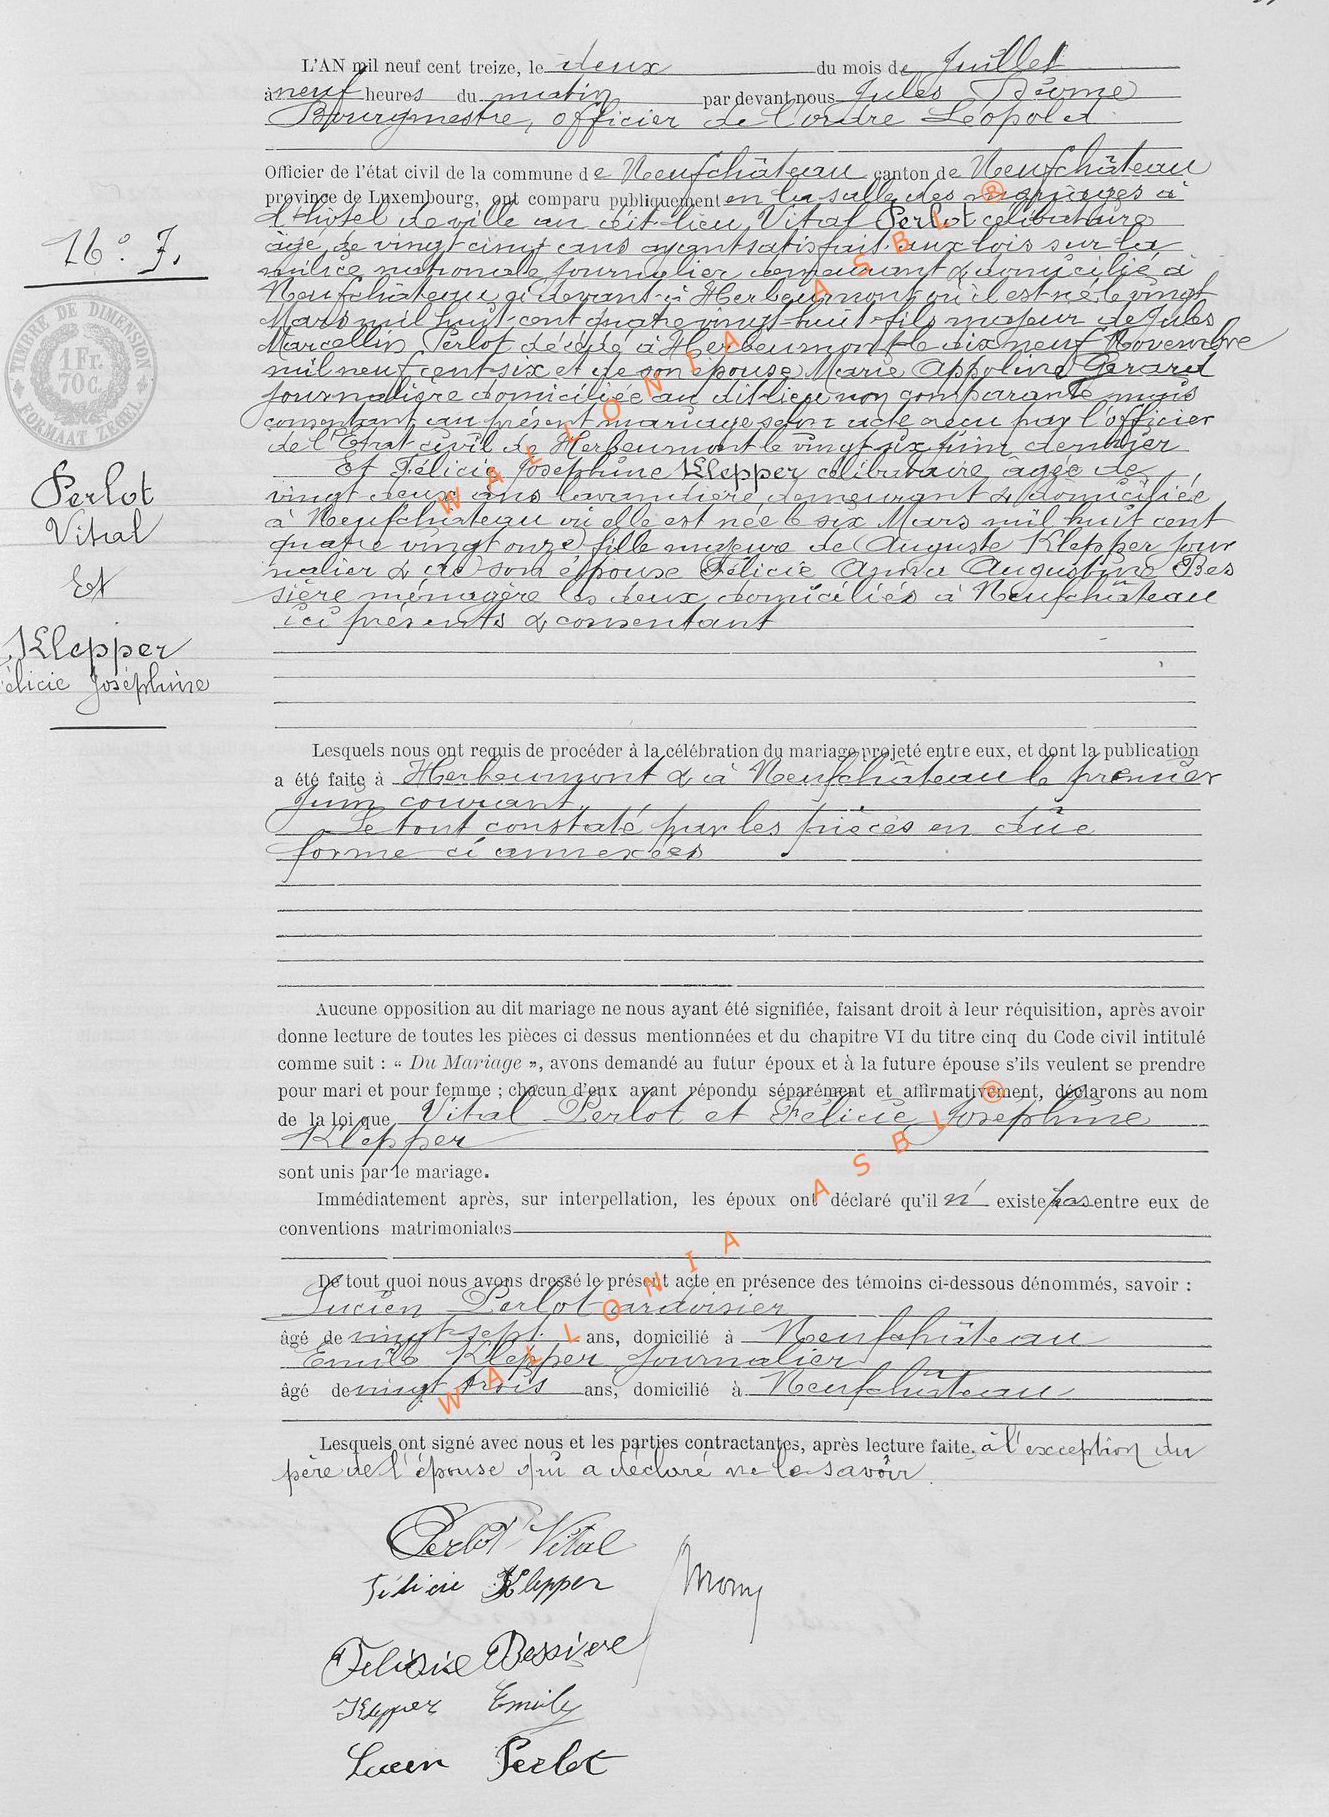 16° F.
TIMBRE DE DIMENSION
1 Fr. 70 c.
FORMAAT ZEGEL
Perlot
Vital
Et
Klepper
Félicie Joséphine
L'AN mil neuf cent treize, le deux du mois de Juillet
à neuf heures du matin par devant nous Jules
Bourgmestre, officier de l'ordre Léopold
Officier de l'état civil de la commune de Neufchâteau canton de Neufchâteau
province de Luxembourg, ont comparu publiquement en la salle des mariages à
l'hôtel de ville au dit lieu Vital Perlot célibataire
âgé de vingt cinq ans ayant satisfait aux lois sur la
milice nationale journalier demeurant & domicilié à
Neufchâteau ci devant à Herbeumont où il est né le vingt
Mars mil huit cent quatre vingt huit fils majeur de Jules
Marcellin Perlot décédé à Herbeumont le dix neuf Novembre
mil neuf cent six et de son épouse Marie Appoline Gerard
journalière domiciliée au dit lieu non comparante mais
consentant au présent mariage selon acte reçu par l'officier
de l'Etat civil de Herbeumont le vingt six Juin dernier
Et Félicie Joséphine Klepper célibataire âgée de
vingt deux ans lavandière demeurant & domiciliée
à Neufchâteau où elle est née le six Mars mil huit cent
quatre vingt onze fille majeure de Auguste Klepper jour
nalier & de son épouse Félicie Anna Augustine Bes
sière ménagère les deux domiciliés à Neufchâteau
ici présents & consentant
Lesquels nous ont requis de procéder à la célébration du mariage projeté entre eux, et dont la publication
a été faite à Herbeumont & à Neufchâteau le premier
Juin courant.
Le tout constaté par les pièces en dûe
forme ci annexées
Aucune opposition au dit mariage ne nous ayant été signifiée, faisant droit à leur réquisition, après avoir
donne lecture de toutes les pièces ci dessus mentionnées et du chapitre VI du titre cinq du Code civil intitulé
comme suit : « Du Mariage », avons demandé au futur époux et à la future épouse s'ils veulent se prendre
pour mari et pour femme ; chacun d'eux ayant répondu séparément et affirmativement, déclarons au nom
de la loi que Vital Perlot et Félicie Joséphine
Klepper
sont unis par le mariage.
Immédiatement après, sur interpellation, les époux ont déclaré qu'il n' existe pas entre eux de
conventions matrimoniales
De tout quoi nous avons dressé le présent acte en présence des témoins ci-dessous dénommés, savoir :
Lucien Perlot ardoisier
âgé de vingt sept ans, domicilié à Neufchâteau
Emile Klepper journalier
âgé de vingt trois ans, domicilié à Neufchâteau
Lesquels ont signé avec nous et les parties contractantes, après lecture faite, à l'exception du
père de l'épouse qui a déclaré ne le savoir.
Perlot Vital
Félicie Klepper
Felicie Bessiere
Klepper Emily
Lucien Perlot
WALLONIA ASBL ®
WALLONIA ASBL ®